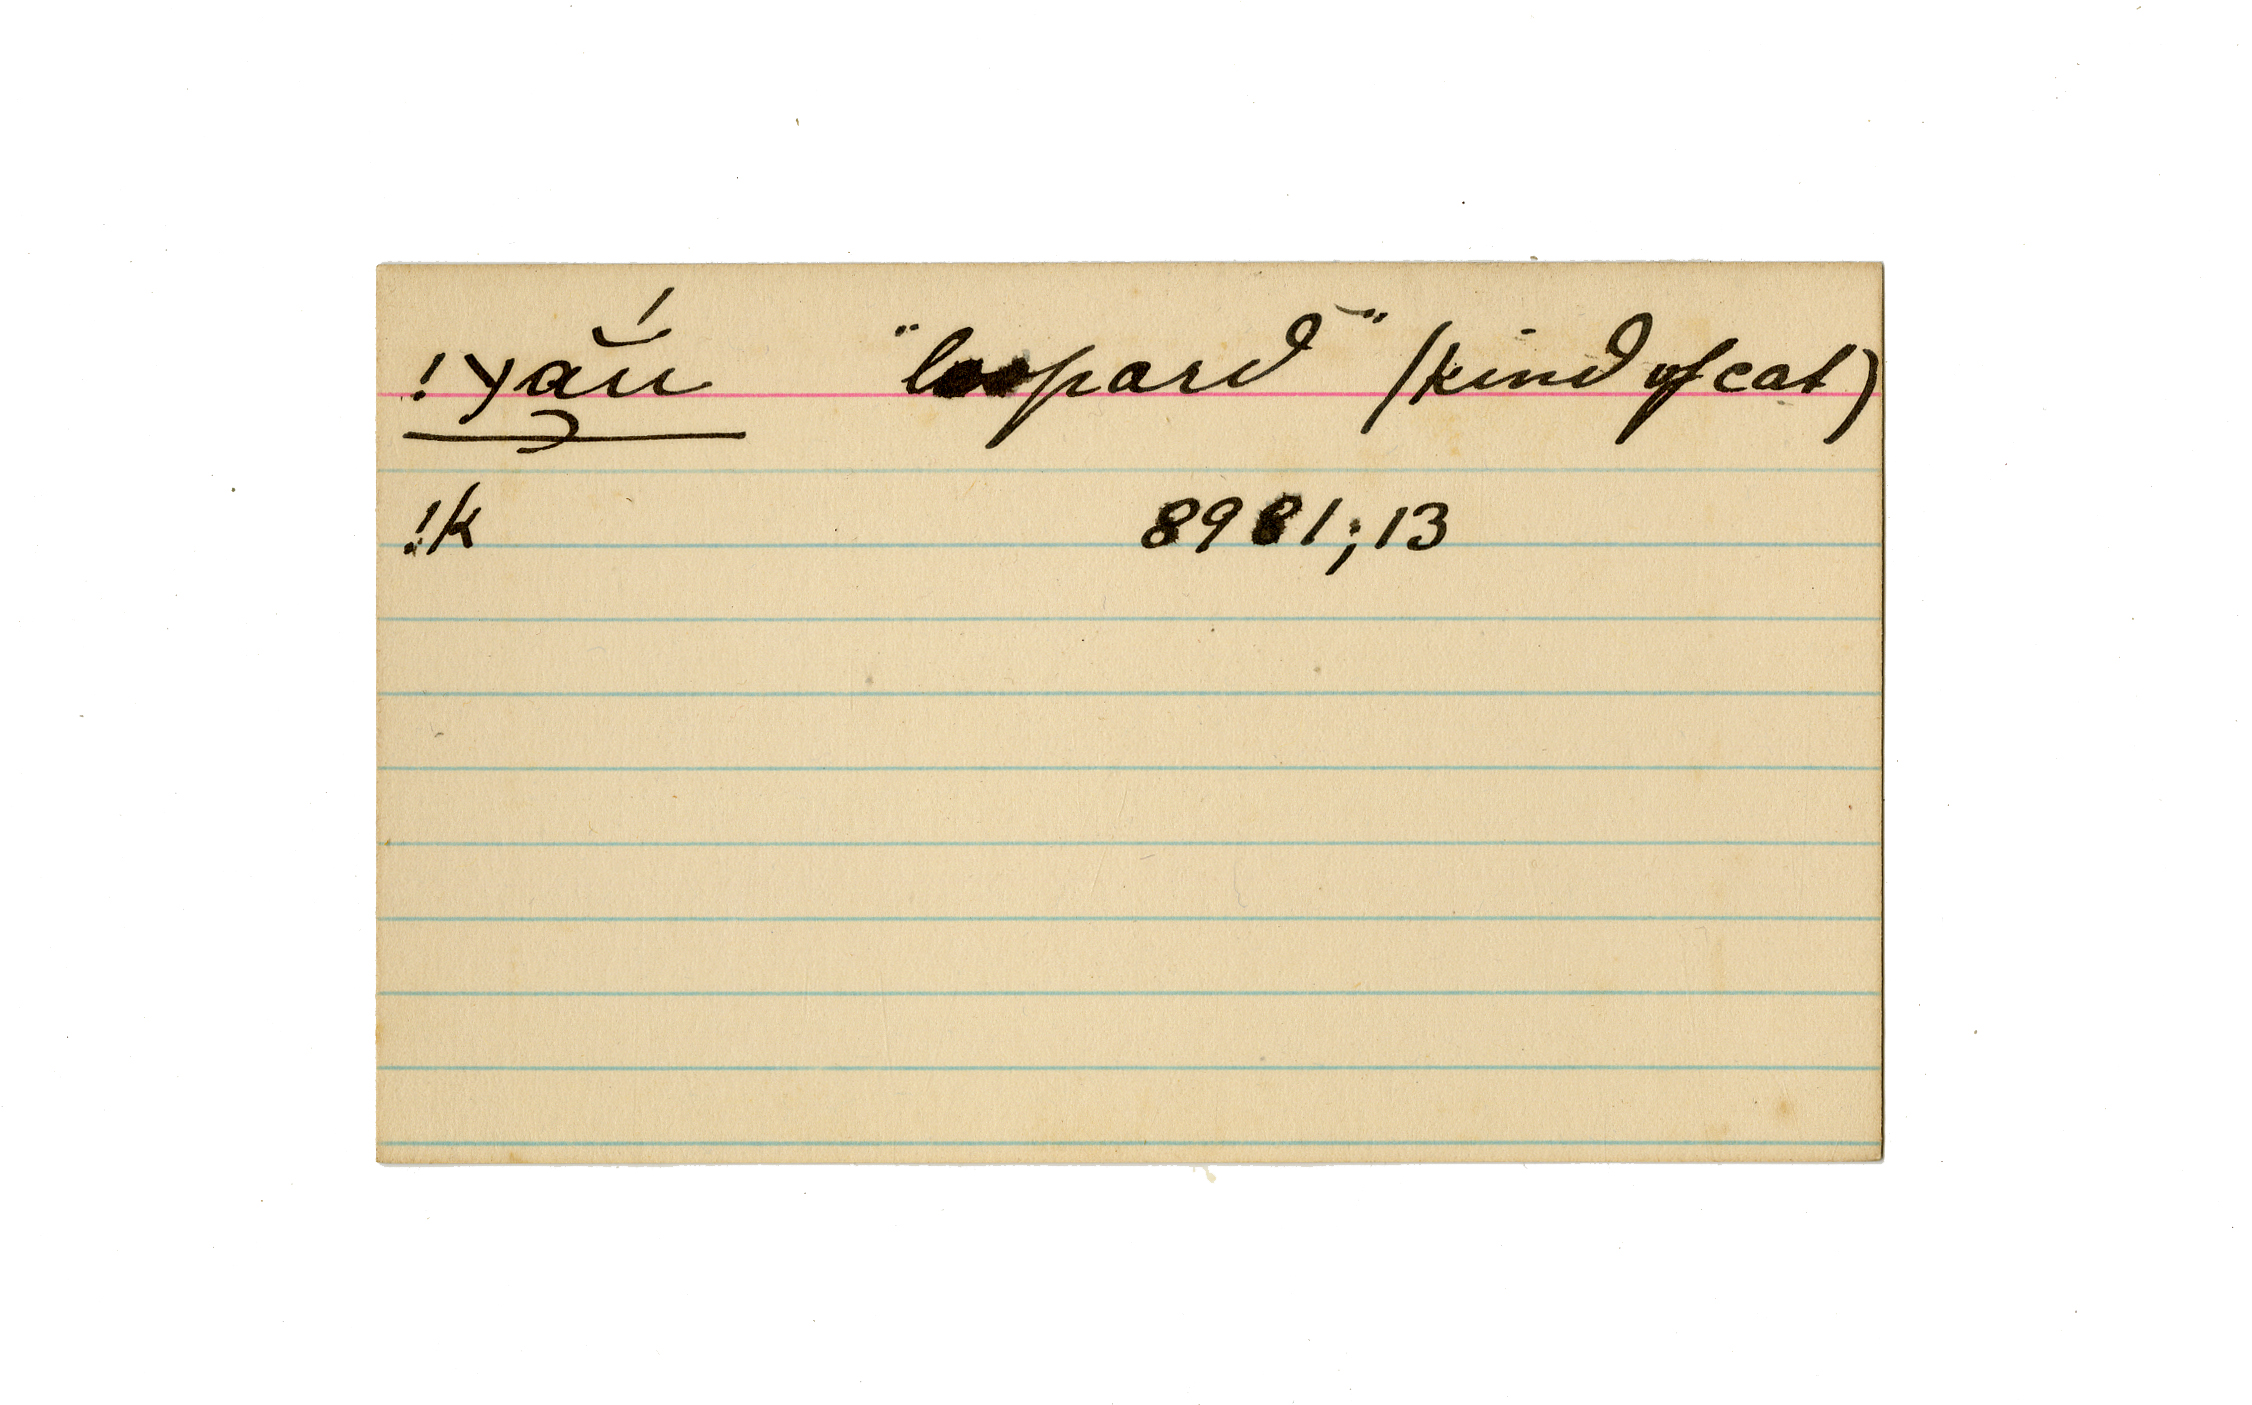 !γắu̯ "leopard" (kind of cat)
!k 8981;13